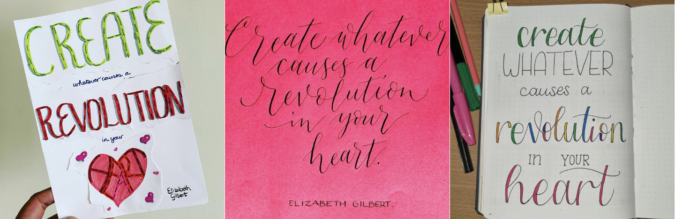 CREATE
whatever causes a
REVOLUTION
in your
ART
Elizabeth
Gilbert
Create whatever
causes a
revolution
in your
heart.
ELIZABETH GILBERT.
create
WHATEVER
causes a
revolution
IN YOUR
heart